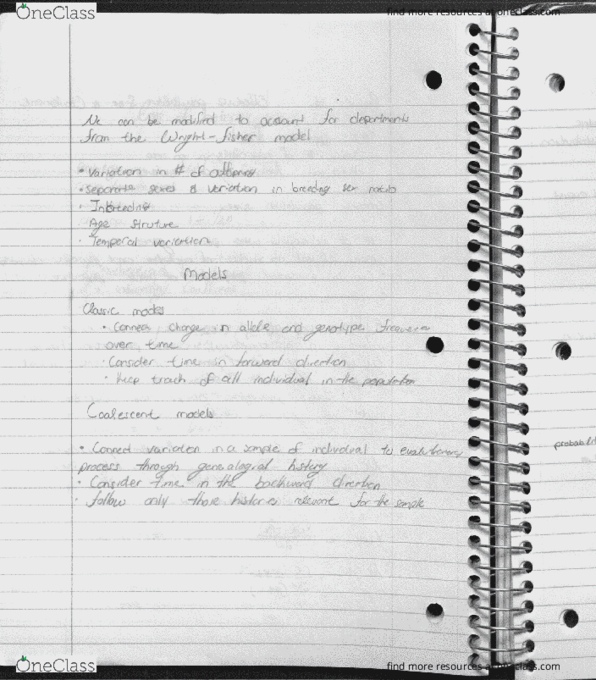 OneClass
find more resources at oneclass.com
Ne can be modified to account for departments
from the Wright-Fisher model
• variation in # of
• separate sexes & variation in breeding sex ratio
• Inbreeding
• Age struture
• Temporal variation
Models
Classic models
• Connect change in allele and genotype frequencies
over time
• Consider time in forward direction
• Keep track of all individual in the population
Coalescent models
• Connect variation in a sample of individual to evolutionary
process through genealogical history
• Consider time in the backward direction
• follow only those histories relevant for the sample
probabilit
OneClass
find more resources at oneclass.com